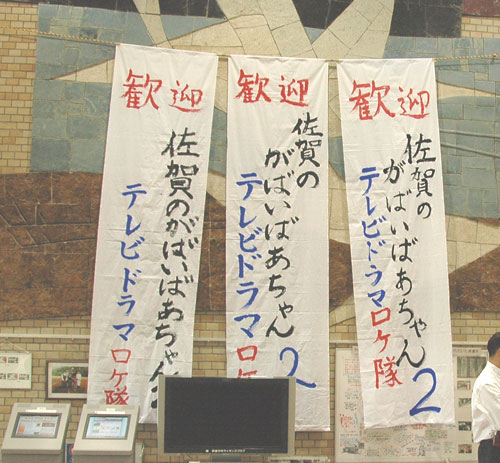 歓迎
佐賀の
がばいばあちゃん
2
テレビドラマロケ隊
歓迎
佐賀の
がばいばあちゃん
2
テレビドラマロケ
歓迎
佐賀のがばいばあちゃん
テレビドラマロケ隊